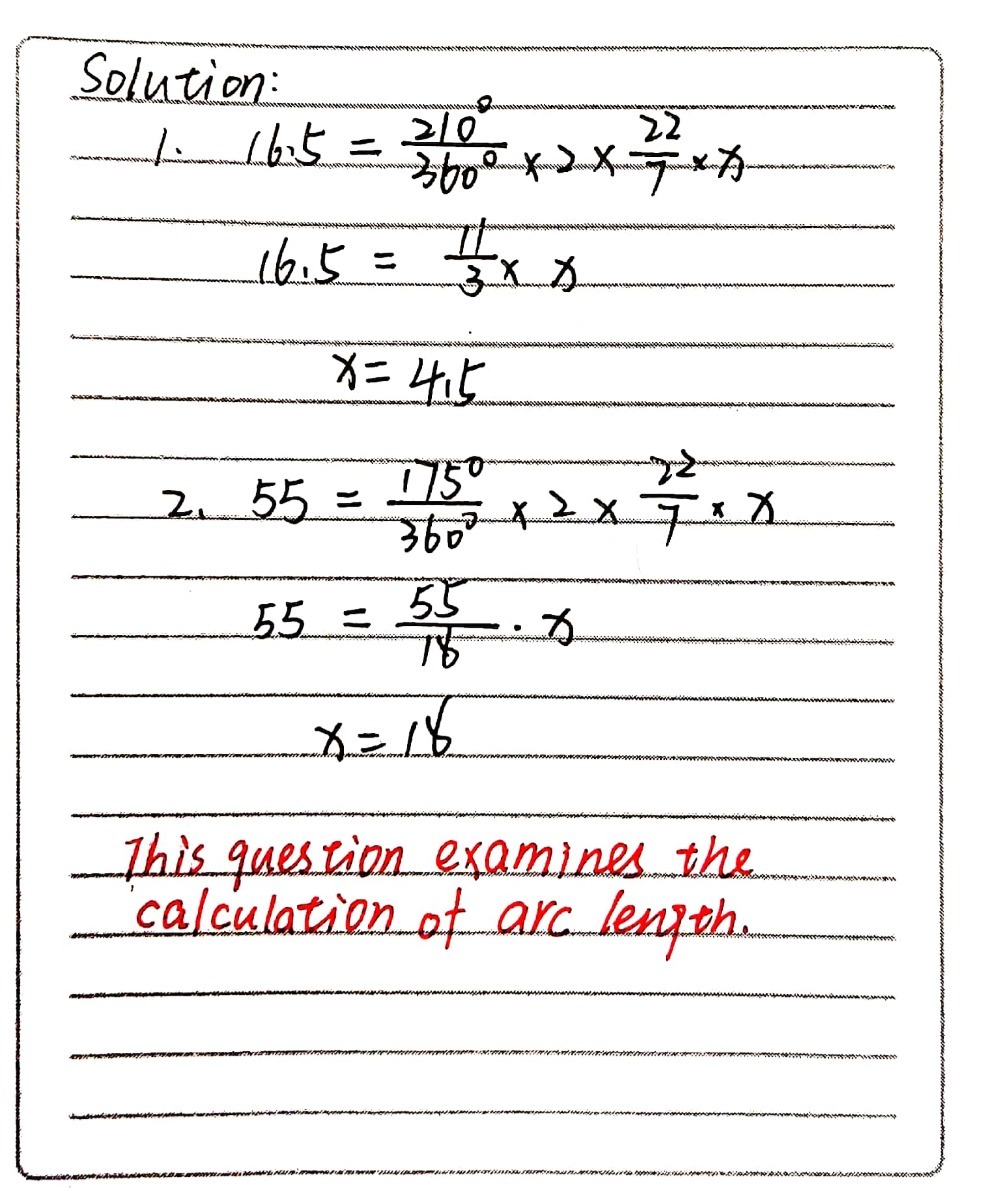 Solution:
1. 16.5 = 210°/360° × 2 × 22/7 × x
16.5 = 11/3 × x
x = 4.5
2. 55 = 175°/360° × 2 × 22/7 × x
55 = 55/18 · x
x = 18
This question examines the
calculation of arc length.